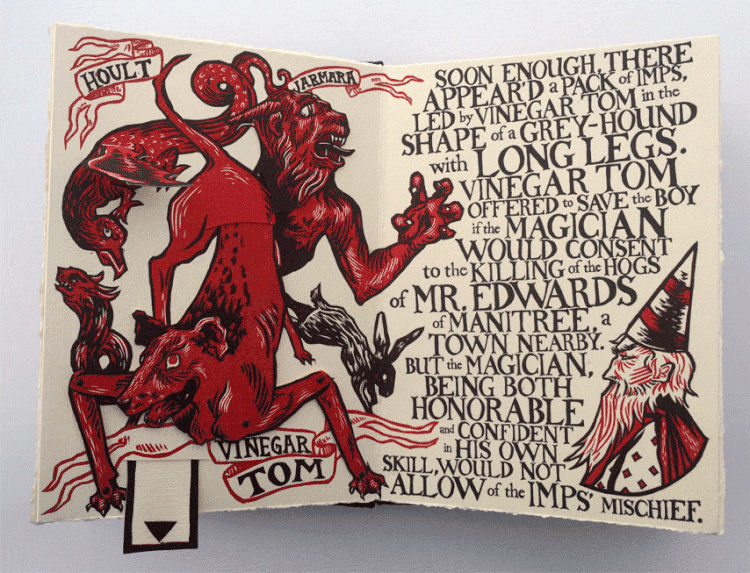 HOULT
JARMARA
VINEGAR
TOM
SOON ENOUGH, THERE
APPEAR'D a PACK of IMPS,
LED by VINEGAR TOM in the
SHAPE of a GREY-HOUND
with LONG LEGS.
VINEGAR TOM
OFFERED to SAVE the BOY
if the MAGICIAN
WOULD CONSENT
to the KILLING of the HOGS
of MR. EDWARDS
of MANITREE, a
TOWN NEARBY.
BUT the MAGICIAN,
BEING BOTH
HONORABLE
and CONFIDENT
in HIS OWN
SKILL, WOULD NOT
ALLOW of the IMPS' MISCHIEF.